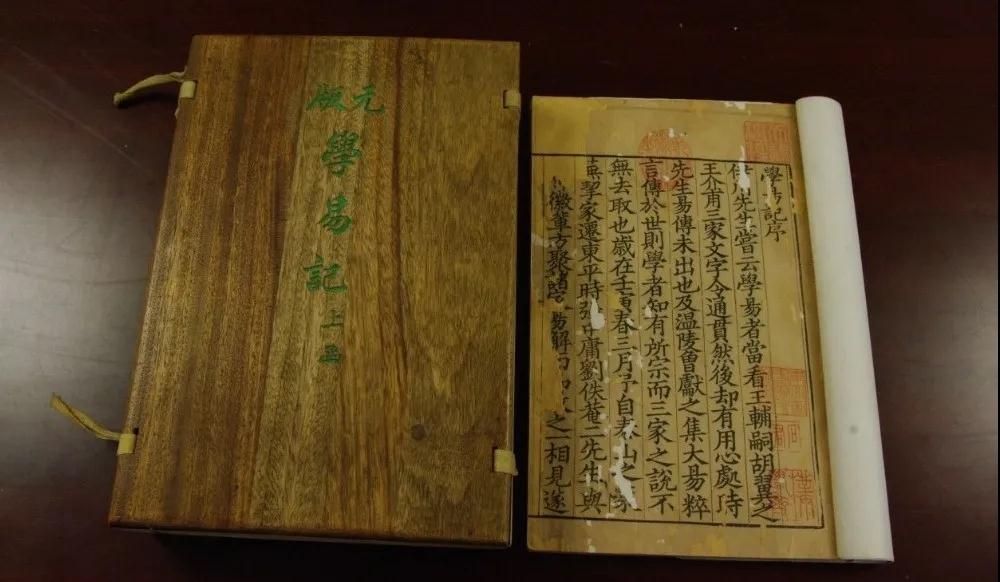 元版
學易記
上函
學易記序
伊川先生嘗云學易者當看王輔嗣胡翼之
王介甫三家文字令通貫然後却有用心處時
先生易傳未出也及温陵曾獻之集大易粹
言傳於世則學者知有所宗而三家之説不
無去取也歲在壬寅春三月予自泰山之
蕪挈家還東平時張中庸劉佚菴二先生與
徽輩方聚諸易解之一相見遂